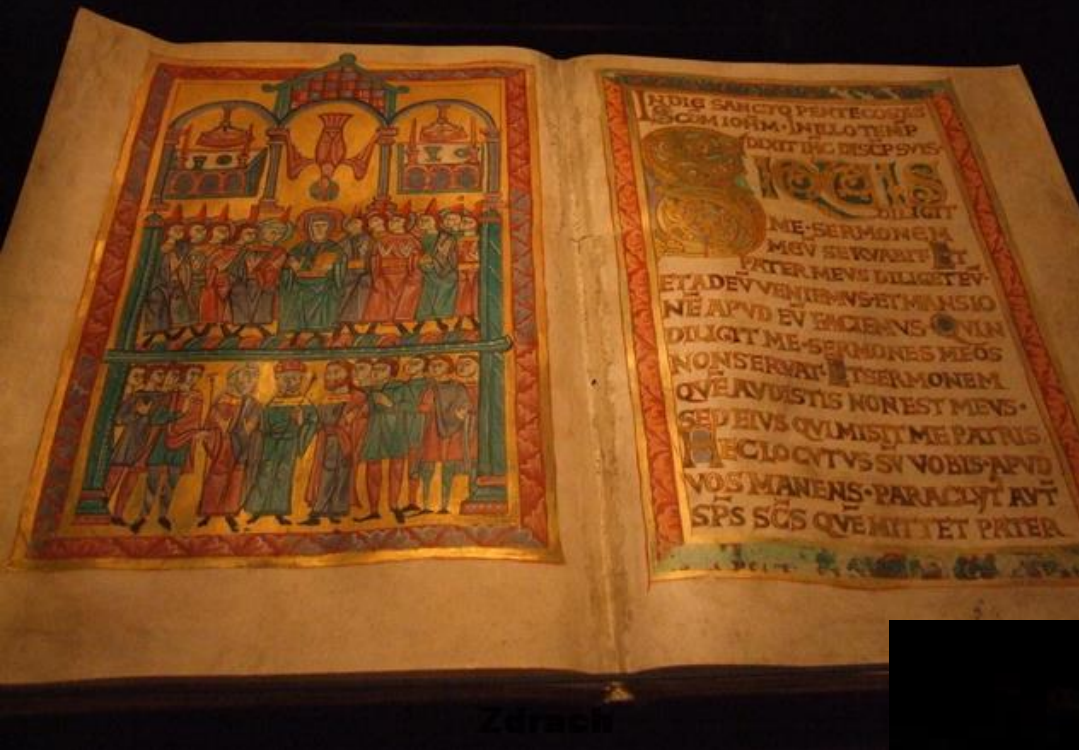 IN DIE SANCTO PENTECOSTES
SCDM IOHM · IN ILLO TEMP
DIXIT IHC DISCP SVIS
SIQUIS
DILIGIT
ME · SERMONEM
MEV SERVABIT · ET
PATER MEVS DILIGET EV ·
ET AD EV VENIEMVS · ET MANSIO
NE APVD EV FACIEMVS QVI N
DILIGIT ME · SERMONES MEOS
NON SERVAT · ET SERMONEM
QVE AVDISTIS NON EST MEVS ·
SED EIVS QVI MISIT ME PATRIS
HEC LOCVTVS SV VOBIS · APVD
VOS MANENS · PARACLYT AVT
SPS SCS QVE MITTET PATER
Zdrach